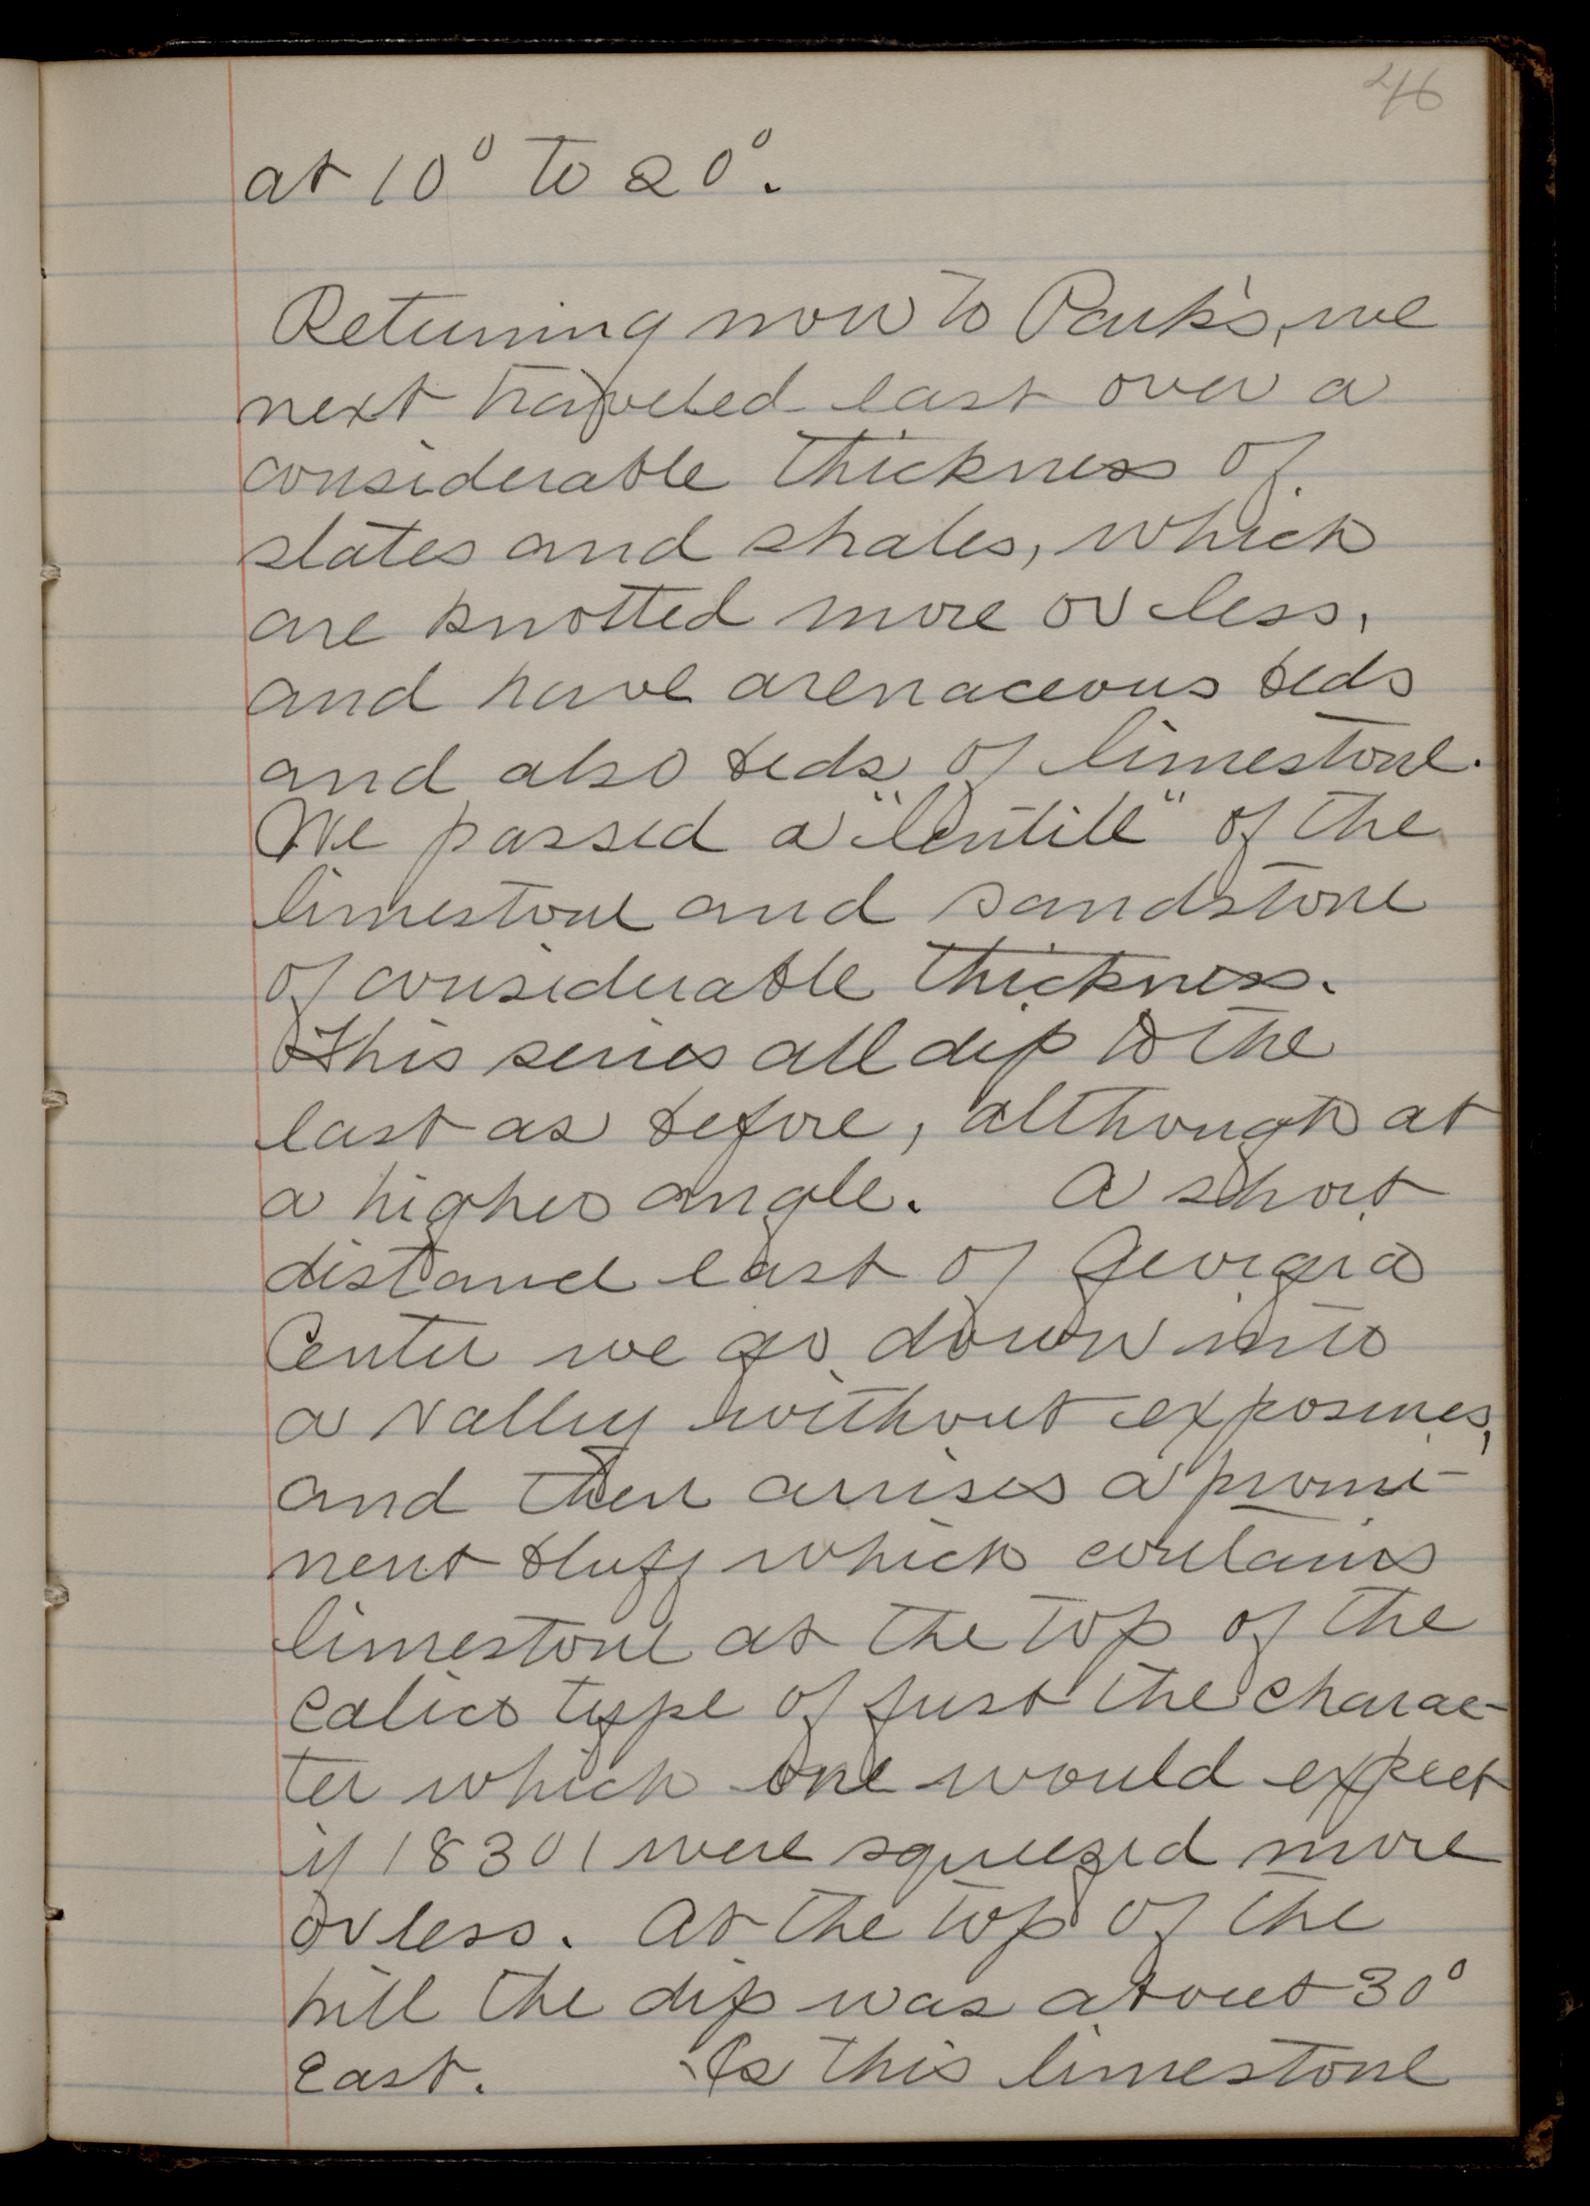 46
at 10° to 20°.
Returning now to Park's, we
next traveled east over a
considerable thickness of
slates and shales, which
are knotted more or less,
and have arenaceous beds
and also beds of limestone.
We passed a "lentill" of the
limestone and sandstone
of considerable thickness.
This series all dip to the
east as before, although at
a higher angle. A short
distance east of Georgia
Center we go down into
a valley without exposures,
and then arrises a promi-
nent bluff which contains
limestone at the top of the
calico type of just the charac-
ter which one would expect
if 18301 were squeezed more
or less. At the top of the
hill the dip was about 30°
East. Is this limestone